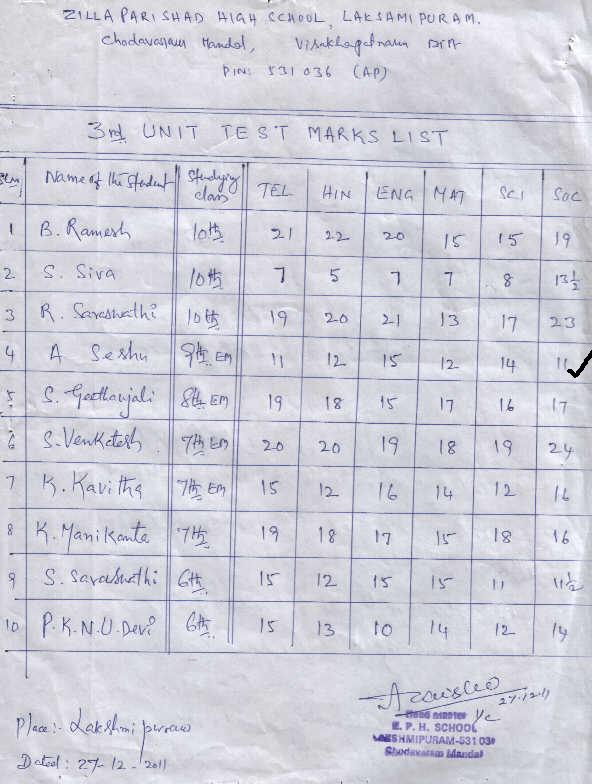 ZILLA PARISHAD HIGH SCHOOL, LAKSAMIPURAM.
Chodavaram Mandal, Visakhapatnam Dist
PIN: 531 036 (AP)
3rd UNIT TEST MARKS LIST
Name of the Student Studying class TEL HIN ENG MAT SCI SOC
1 B. Ramesh 10th 21 22 20 15 15 19
2 S. Siva 10th 7 5 7 7 8 13½
3 R. Saraswathi 10th 19 20 21 13 17 23
4 A Seshu 9th EM 11 12 15 12 14 11
5 S. Geethanjali 8th EM 19 18 15 17 16 17
6 S. Venkatesh 7th EM 20 20 19 18 19 24
7 K. Kavitha 7th EM 15 12 16 14 12 16
8 K. Manikanta 7th 19 18 17 15 18 16
9 S. Saraswathi 6th 15 12 15 15 11 11½
10 P.K.N.U. Devi 6th 15 13 10 14 12 14
27-12-11
Head Master I/c
Z. P. H. SCHOOL
LAKSHMIPURAM-531 036
Chodavaram Mandal
Place:- Lakshmipuram
Dated: 27-12-2011